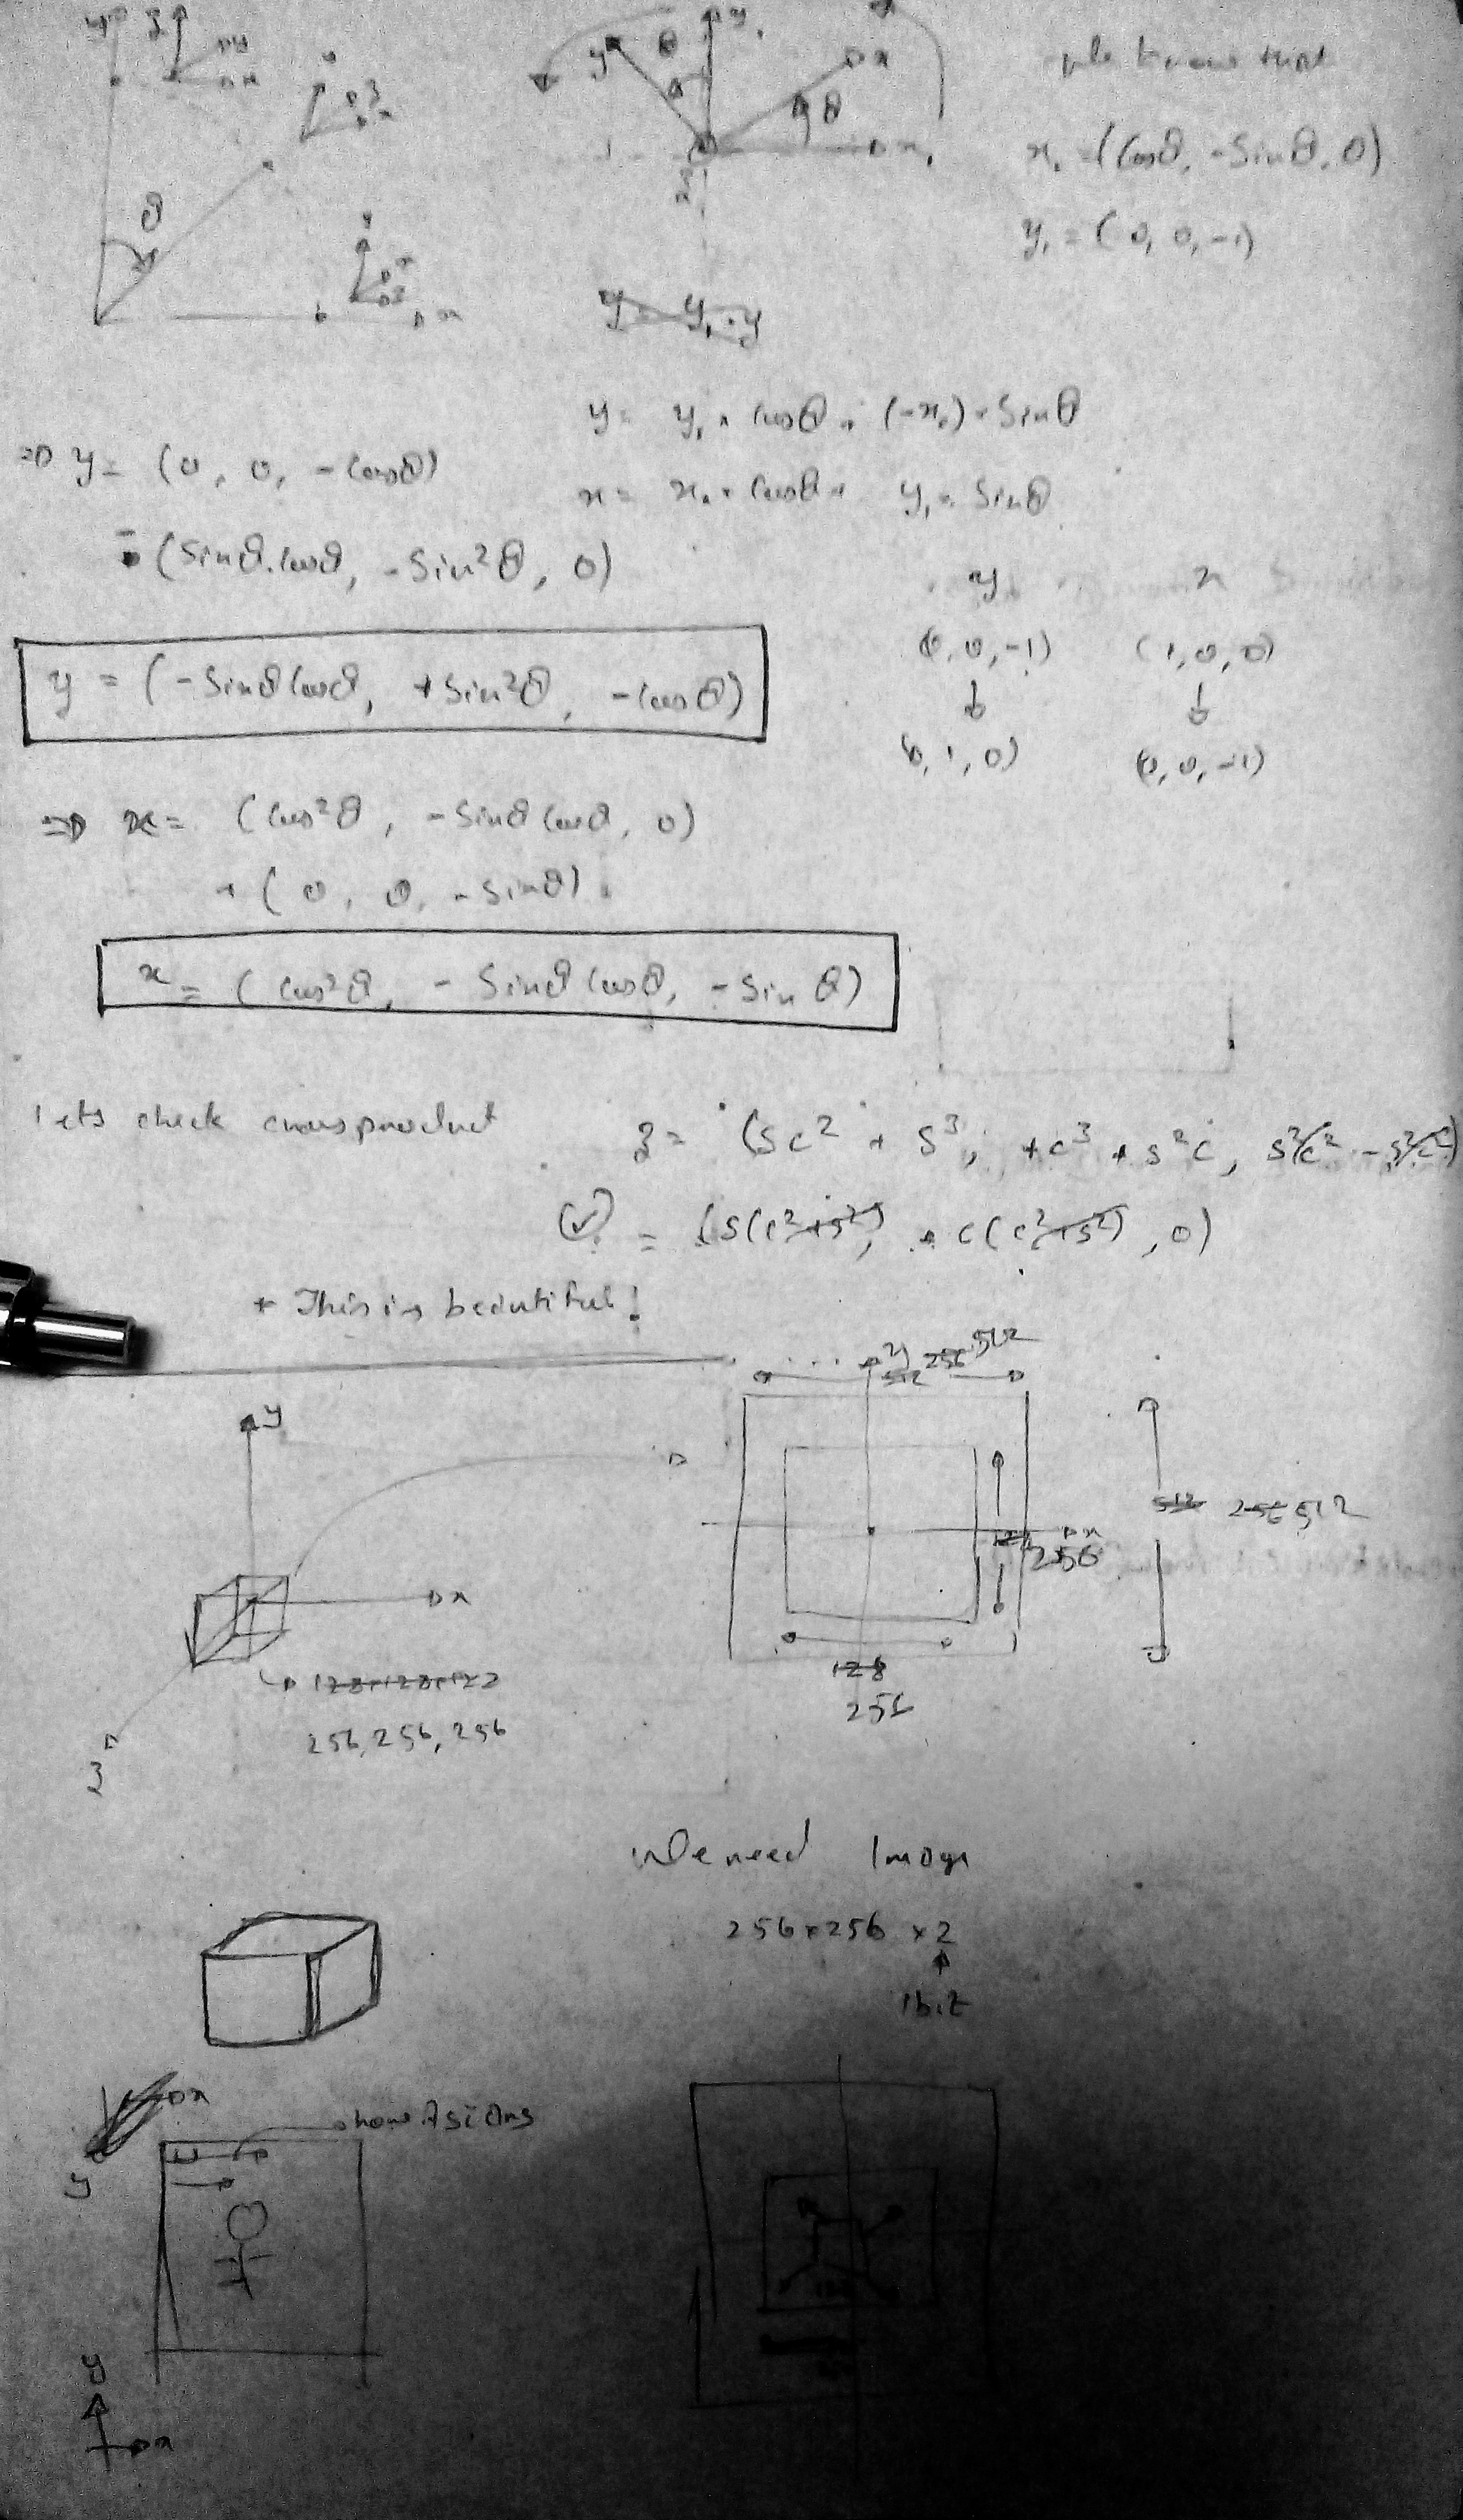 y
x
θ
y
θ
y₁
x
θ
x₁
z
We know that
x₁ = (Cosθ, -Sinθ, 0)
y₁ = (0, 0, -1)
y = y₁ * Cosθ + (-x₁) * Sinθ
x = x₁ * Cosθ + y₁ * Sinθ
=> y = (0, 0, -Cosθ)
- (Sinθ.Cosθ, -Sin²θ, 0)
y = (-SinθCosθ, +Sin²θ, -Cosθ)
y x
(0, 0, -1) (1, 0, 0)
(0, 1, 0) (0, 0, -1)
=> x = (Cos²θ, -SinθCosθ, 0)
+ (0, 0, -Sinθ)
x = (Cos²θ, -SinθCosθ, -Sinθ)
lets check crossproduct
z = (sc² + s³, +c³ + s²c, s²c² - s²c²)
(✓) = (s(c²+s²), + c(c²+s²), 0)
* This is beautiful!
y
x
z
128×128×128
256, 256, 256
y
512 256 512
x
256
512 256 512
128
256
We need Image
256×256 ×2
1bit
x
y
y
x